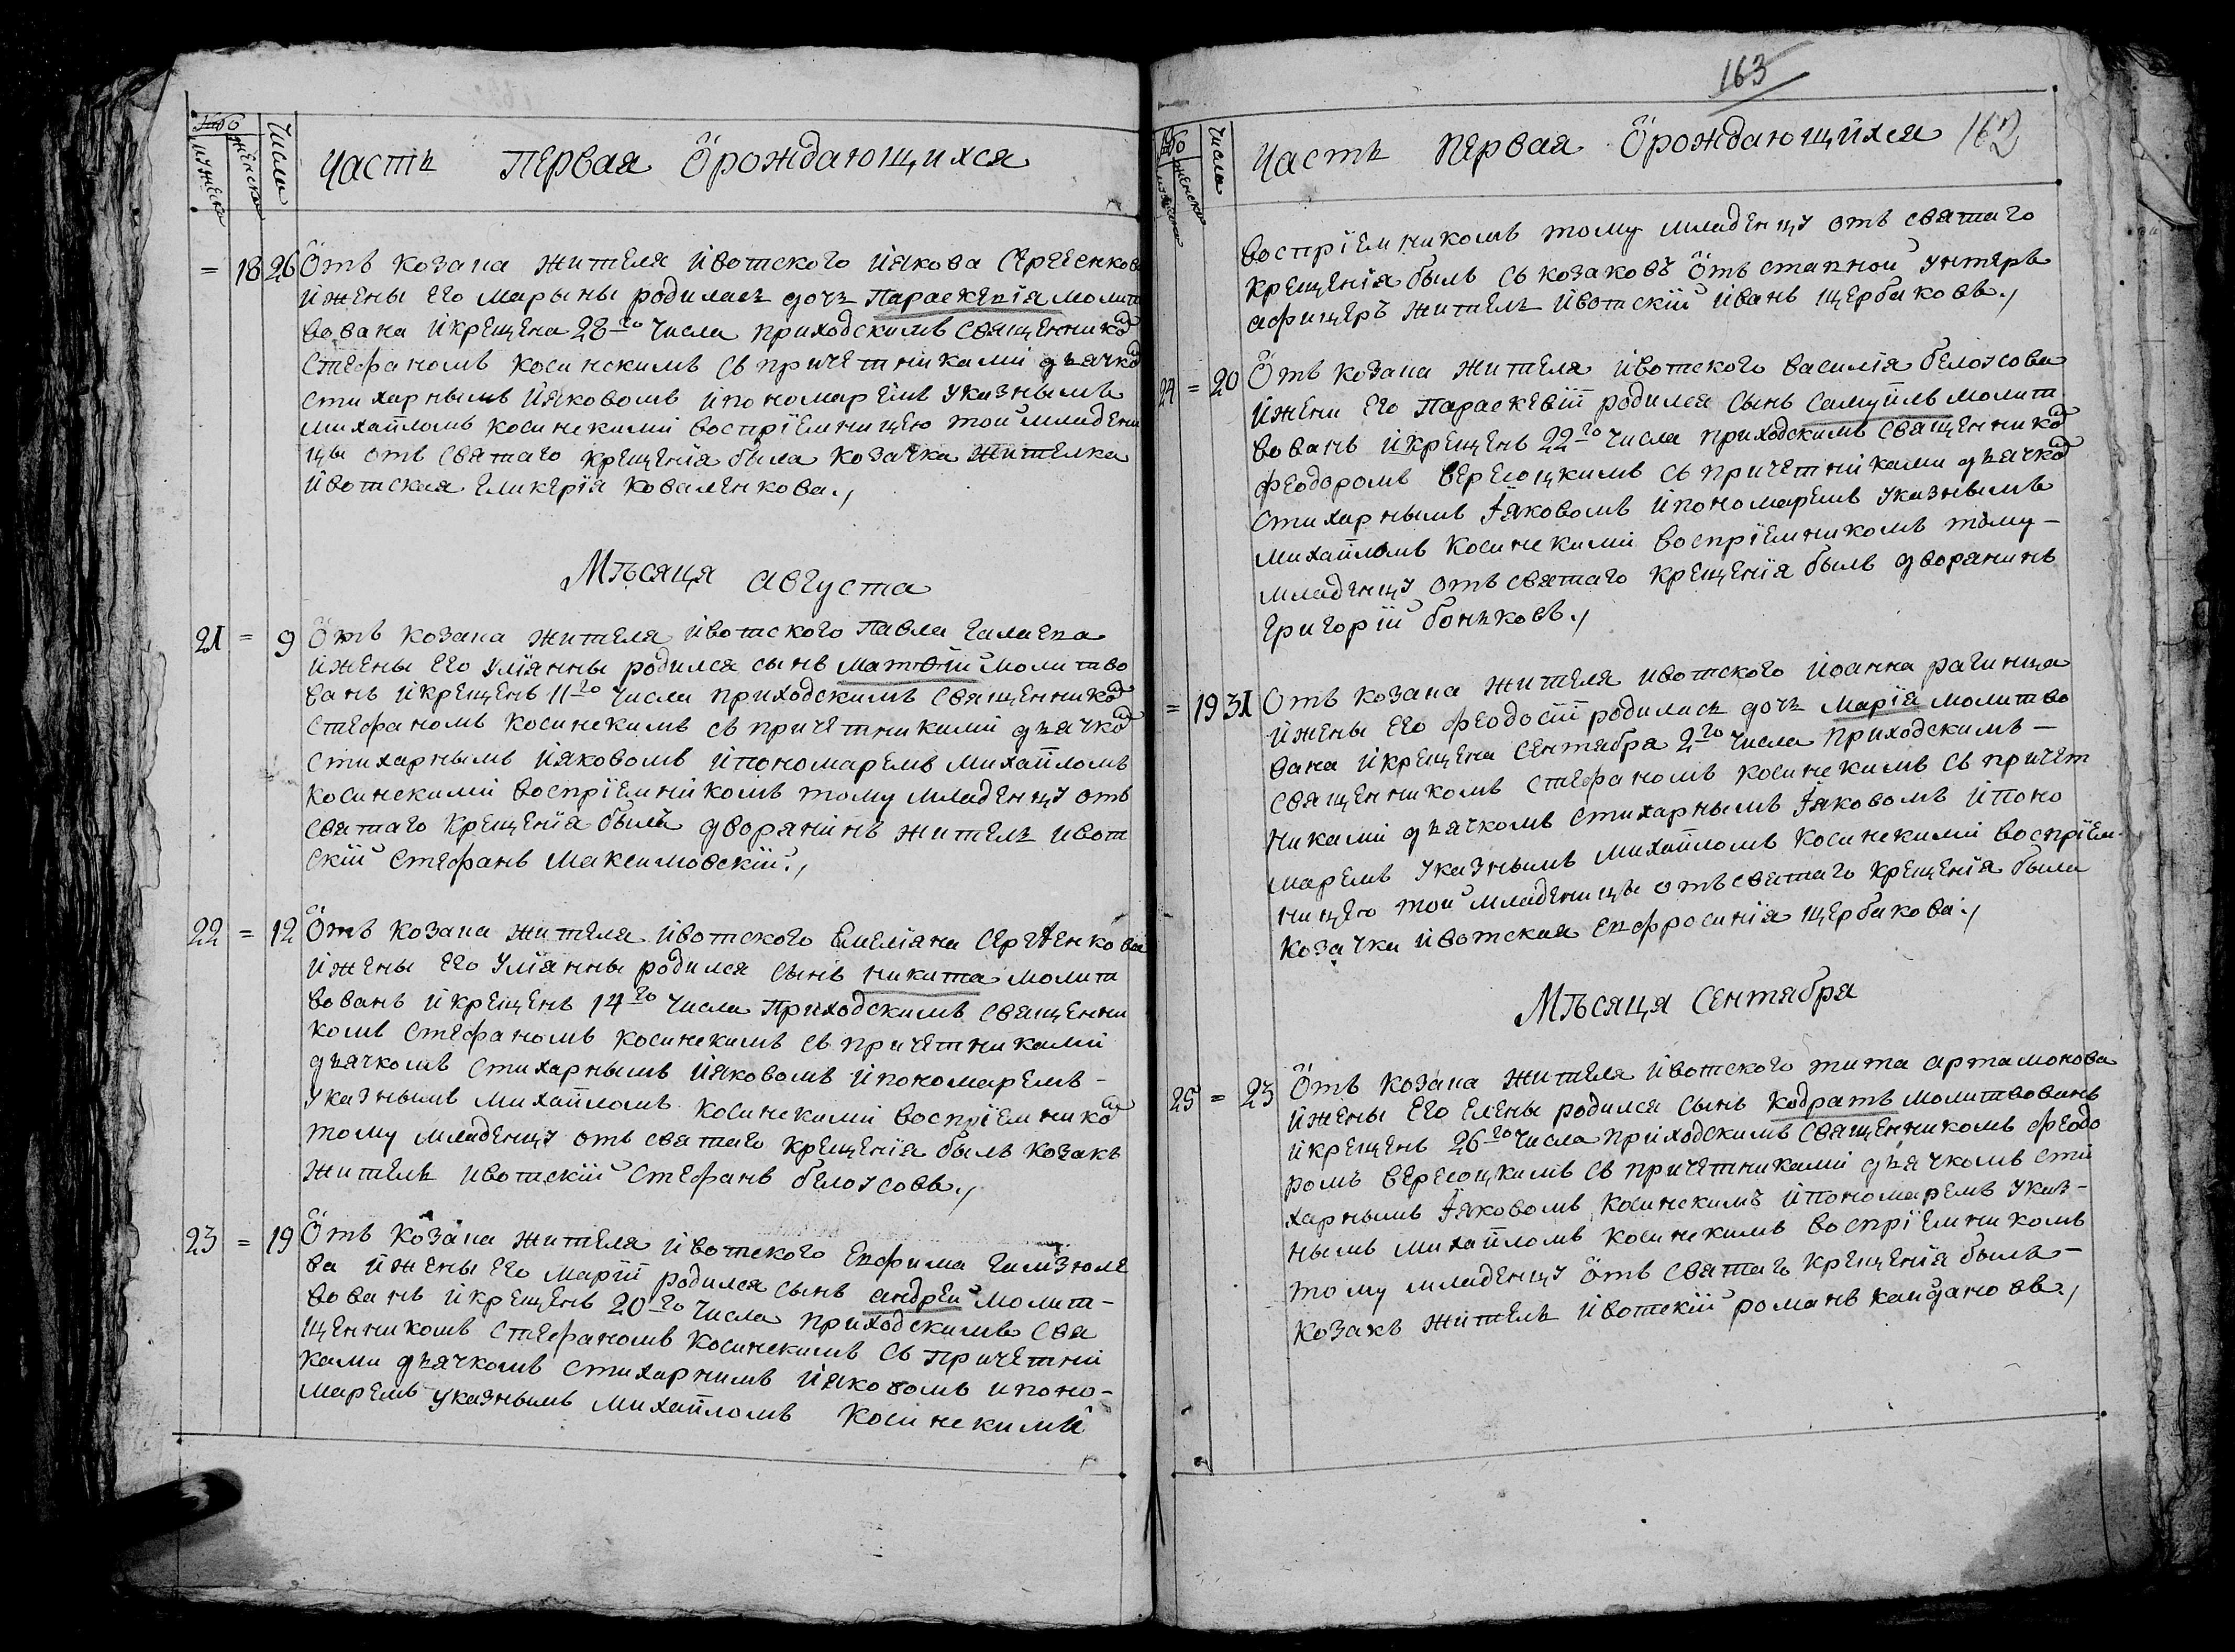 Мужеска
Женска
Числа
Часть Первая О рождающихся
= 18 26 Отъ козака жителя Ивотского Иякова Сергеенкова
и жены его Марыны родилась дочь Параскевія молит
вована и крещена 28го числа приходскимъ священнико
Стефаномъ Косинскимъ съ причетниками дьячко
стихарнымъ Ияковомъ и пономаремъ указнымъ
Михаиломъ Косинскими воспріемницею той младени
цы отъ святаго крещенія была козачка жителка
Ивотская Гликерія Коваленкова.,
Мѣсяця Августа
21 = 9 Отъ козака жителя Ивотского Павла
и жены его Уліянны родился сынъ Матѳѣй молитво
ванъ и крещенъ 11го числа приходскимъ священнико
Стефаномъ Косинскимъ съ причетниками дьячко
стихарнымъ Ияковомъ и пономаремъ Михаиломъ
Косинскими воспріемникомъ тому младенцу отъ
святаго крещенія былъ дворянинъ житель Ивот
скій Стефанъ Максимовскій.,
22 = 12 Отъ козака жителя Ивотского Емеліяна Сергѣенкова
и жены его Уліянны родился сынъ Никита молит
вованъ и крещенъ 14го числа Приходскимъ священни
комъ Стефаномъ Косинскимъ съ причетниками
дьячкомъ стихарнымъ Ияковомъ и пономаремъ-
указнымъ Михаиломъ Косинскими воспріемнико
тому младенцу отъ святаго крещенія былъ козакъ
житель Ивотскій Стефанъ Белоусовъ.,
23 = 19 Отъ козака жителя Ивотского Евфима
ва и жены его Маріи родился сынъ Андрей молит-
вованъ и крещенъ 20го числа приходскимъ свя
щенникомъ Стефаномъ Косинскимъ съ Причетни
ками дьячкомъ стихарнимъ Ияковомъ и поно-
маремъ указнымъ Михаиломъ Косинскими
163
162
Мужеска
Женска
Числа
Часть Первая О рождающихся
воспріемникомъ тому младенцу отъ святаго
крещенія былъ съ козаковъ отъставной унтеръ
афицеръ житель Ивотскій Иванъ Щербаковъ.,
24 = 20 Отъ козака жителя Ивотского Василія Белоусова
и жени его Параскевіи родился сынъ Самуилъ молит
вованъ и крещенъ 22го числа приходскимъ священнико
Феодоромъ Вересоцкимъ съ причетниками дьячко
стихарнымъ Іяковомъ и пономаремъ указнымъ
Михаиломъ Косинскими воспріемникомъ тому-
младенцу отъ святаго крещенія былъ дворянинъ
Григорій Бонъковъ.,
= 19 31 Отъ козака жителя Ивотского Иоанна Рагинца
и жены его Феодосіи родилась дочь Марія молитво
вана и крещена Сентября 2го числа приходскимъ-
священникомъ Стефаномъ Косинскимъ съ причет
никами дьячкомъ стихарнымъ Іяковомъ и поно
маремъ указнымъ Михаиломъ Косинскими воспріем-
ницею той младеницы отъ святаго крещенія была
козачка Ивотская Евфросинія Щербакова.,
Мѣсяця Сентября
25 = 23 Отъ козака жителя Ивотского Тита Артамонова
и жены его Елены родился сынъ Кодратъ молитвованъ
и крещенъ 26го числа приходскимъ священникомъ Феодо
ромъ Вересоцкимъ съ причетниками дьячкомъ сти
харнымъ Іяковомъ Косинскимъ и пономаремъ указ-
нымъ Михаиломъ Косинскимъ воспріемникомъ
тому младенцу отъ святаго крещенія былъ-
козакъ житель Ивотскій Романъ Кайдановъ.,